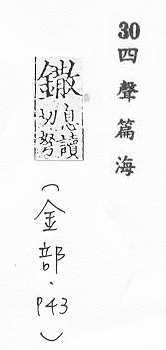 30四聲篇海
息讀
切努
（金部．P43）